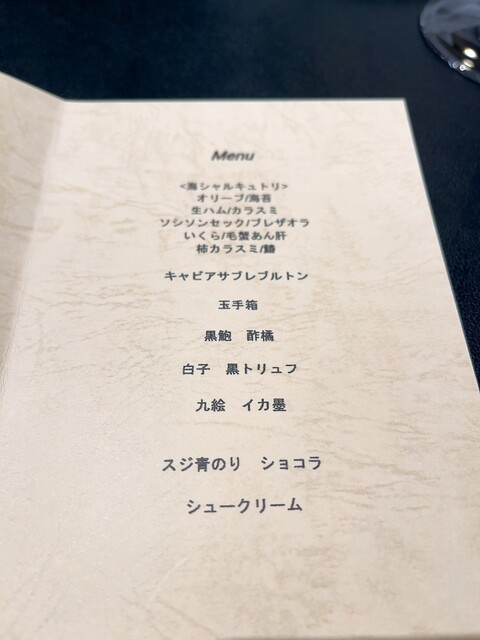 Menu
<海シャルキュトリ>
オリーブ/海苔
生ハム/カラスミ
ソシソンセック/ブレザオラ
いくら/毛蟹あん肝
柿カラスミ/鰆
キャビアサブレブルトン
玉手箱
黒鮑　酢橘
白子　黒トリュフ
九絵　イカ墨
スジ青のり　ショコラ
シュークリーム